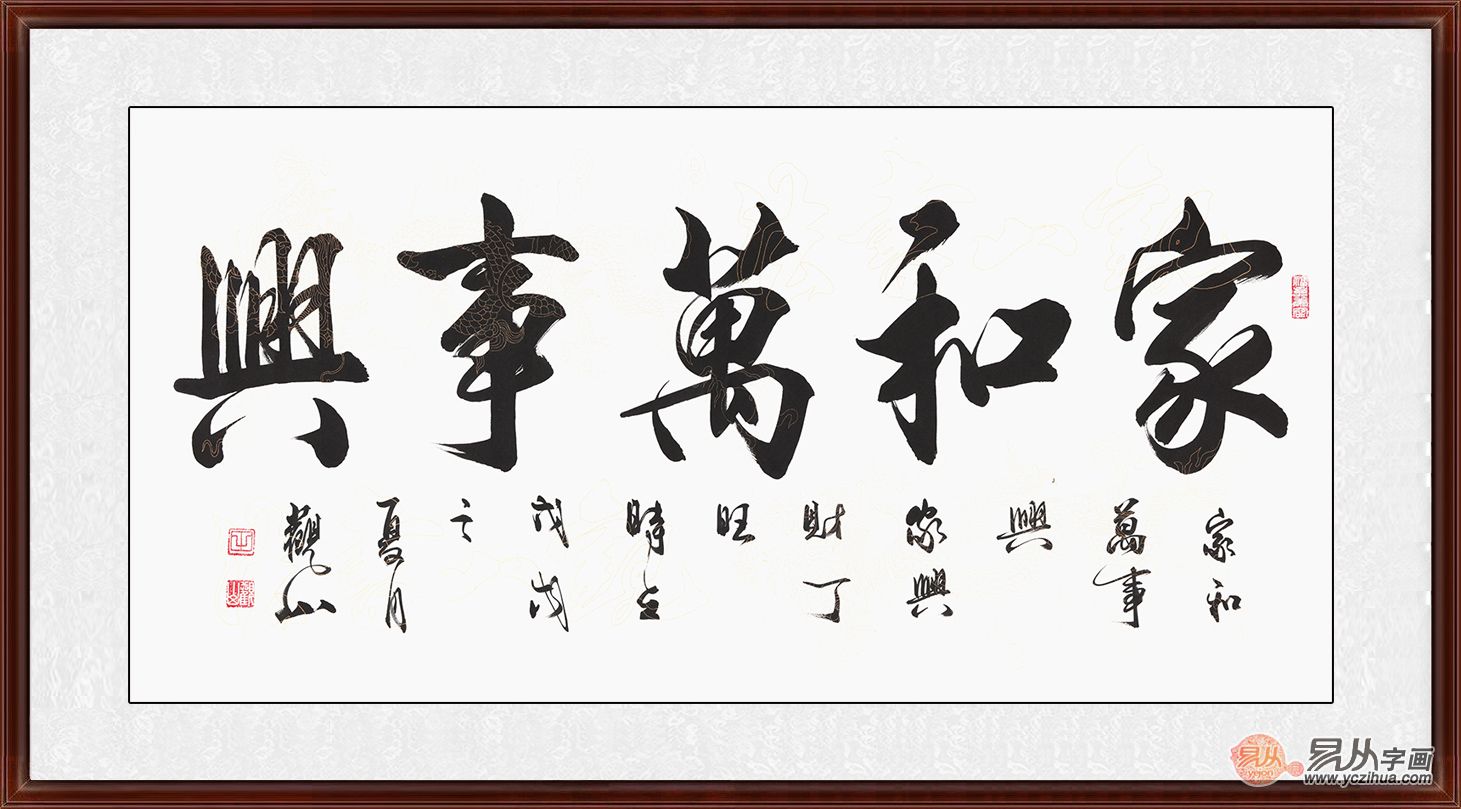 家和萬事興
家和
萬事
興
家興
財丁
旺
時在
戊戌
之
夏月
觀山
易从
易从字画
www.yczihua.com